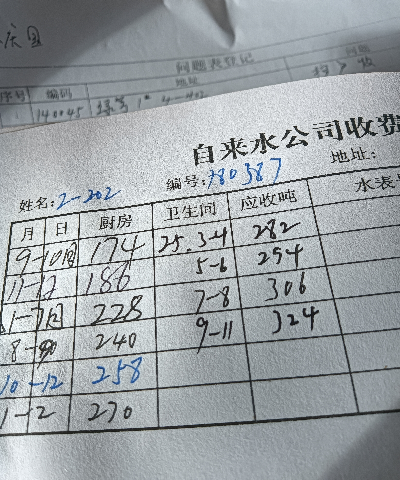 问题表登记
序号 编码 地址 问题
140045
自来水公司收费
姓名: 2-202 编号: 780587 地址:
月 日 厨房 卫生间 应收吨 水表
9-10月 174 25.3-4 282
11-12 186 5-6 294
1-7月 228 7-8 306
8-9 240 9-11 324
10-12 258
1-2 270